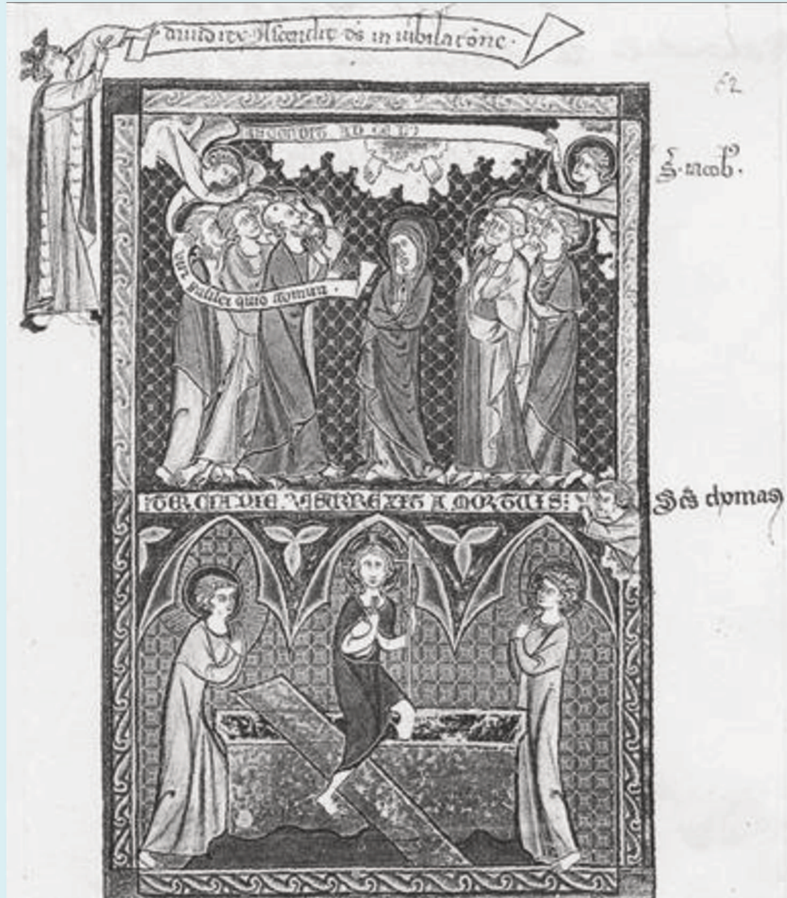 dauid rex Ascendit d̄s in iubilatōne.
62
ASCENDIT AD CELOS
S. iacob᷒.
uiri galilei quid
TERCIA DIE RESURREXIT A MORTUIS:
Sc̄s thomas